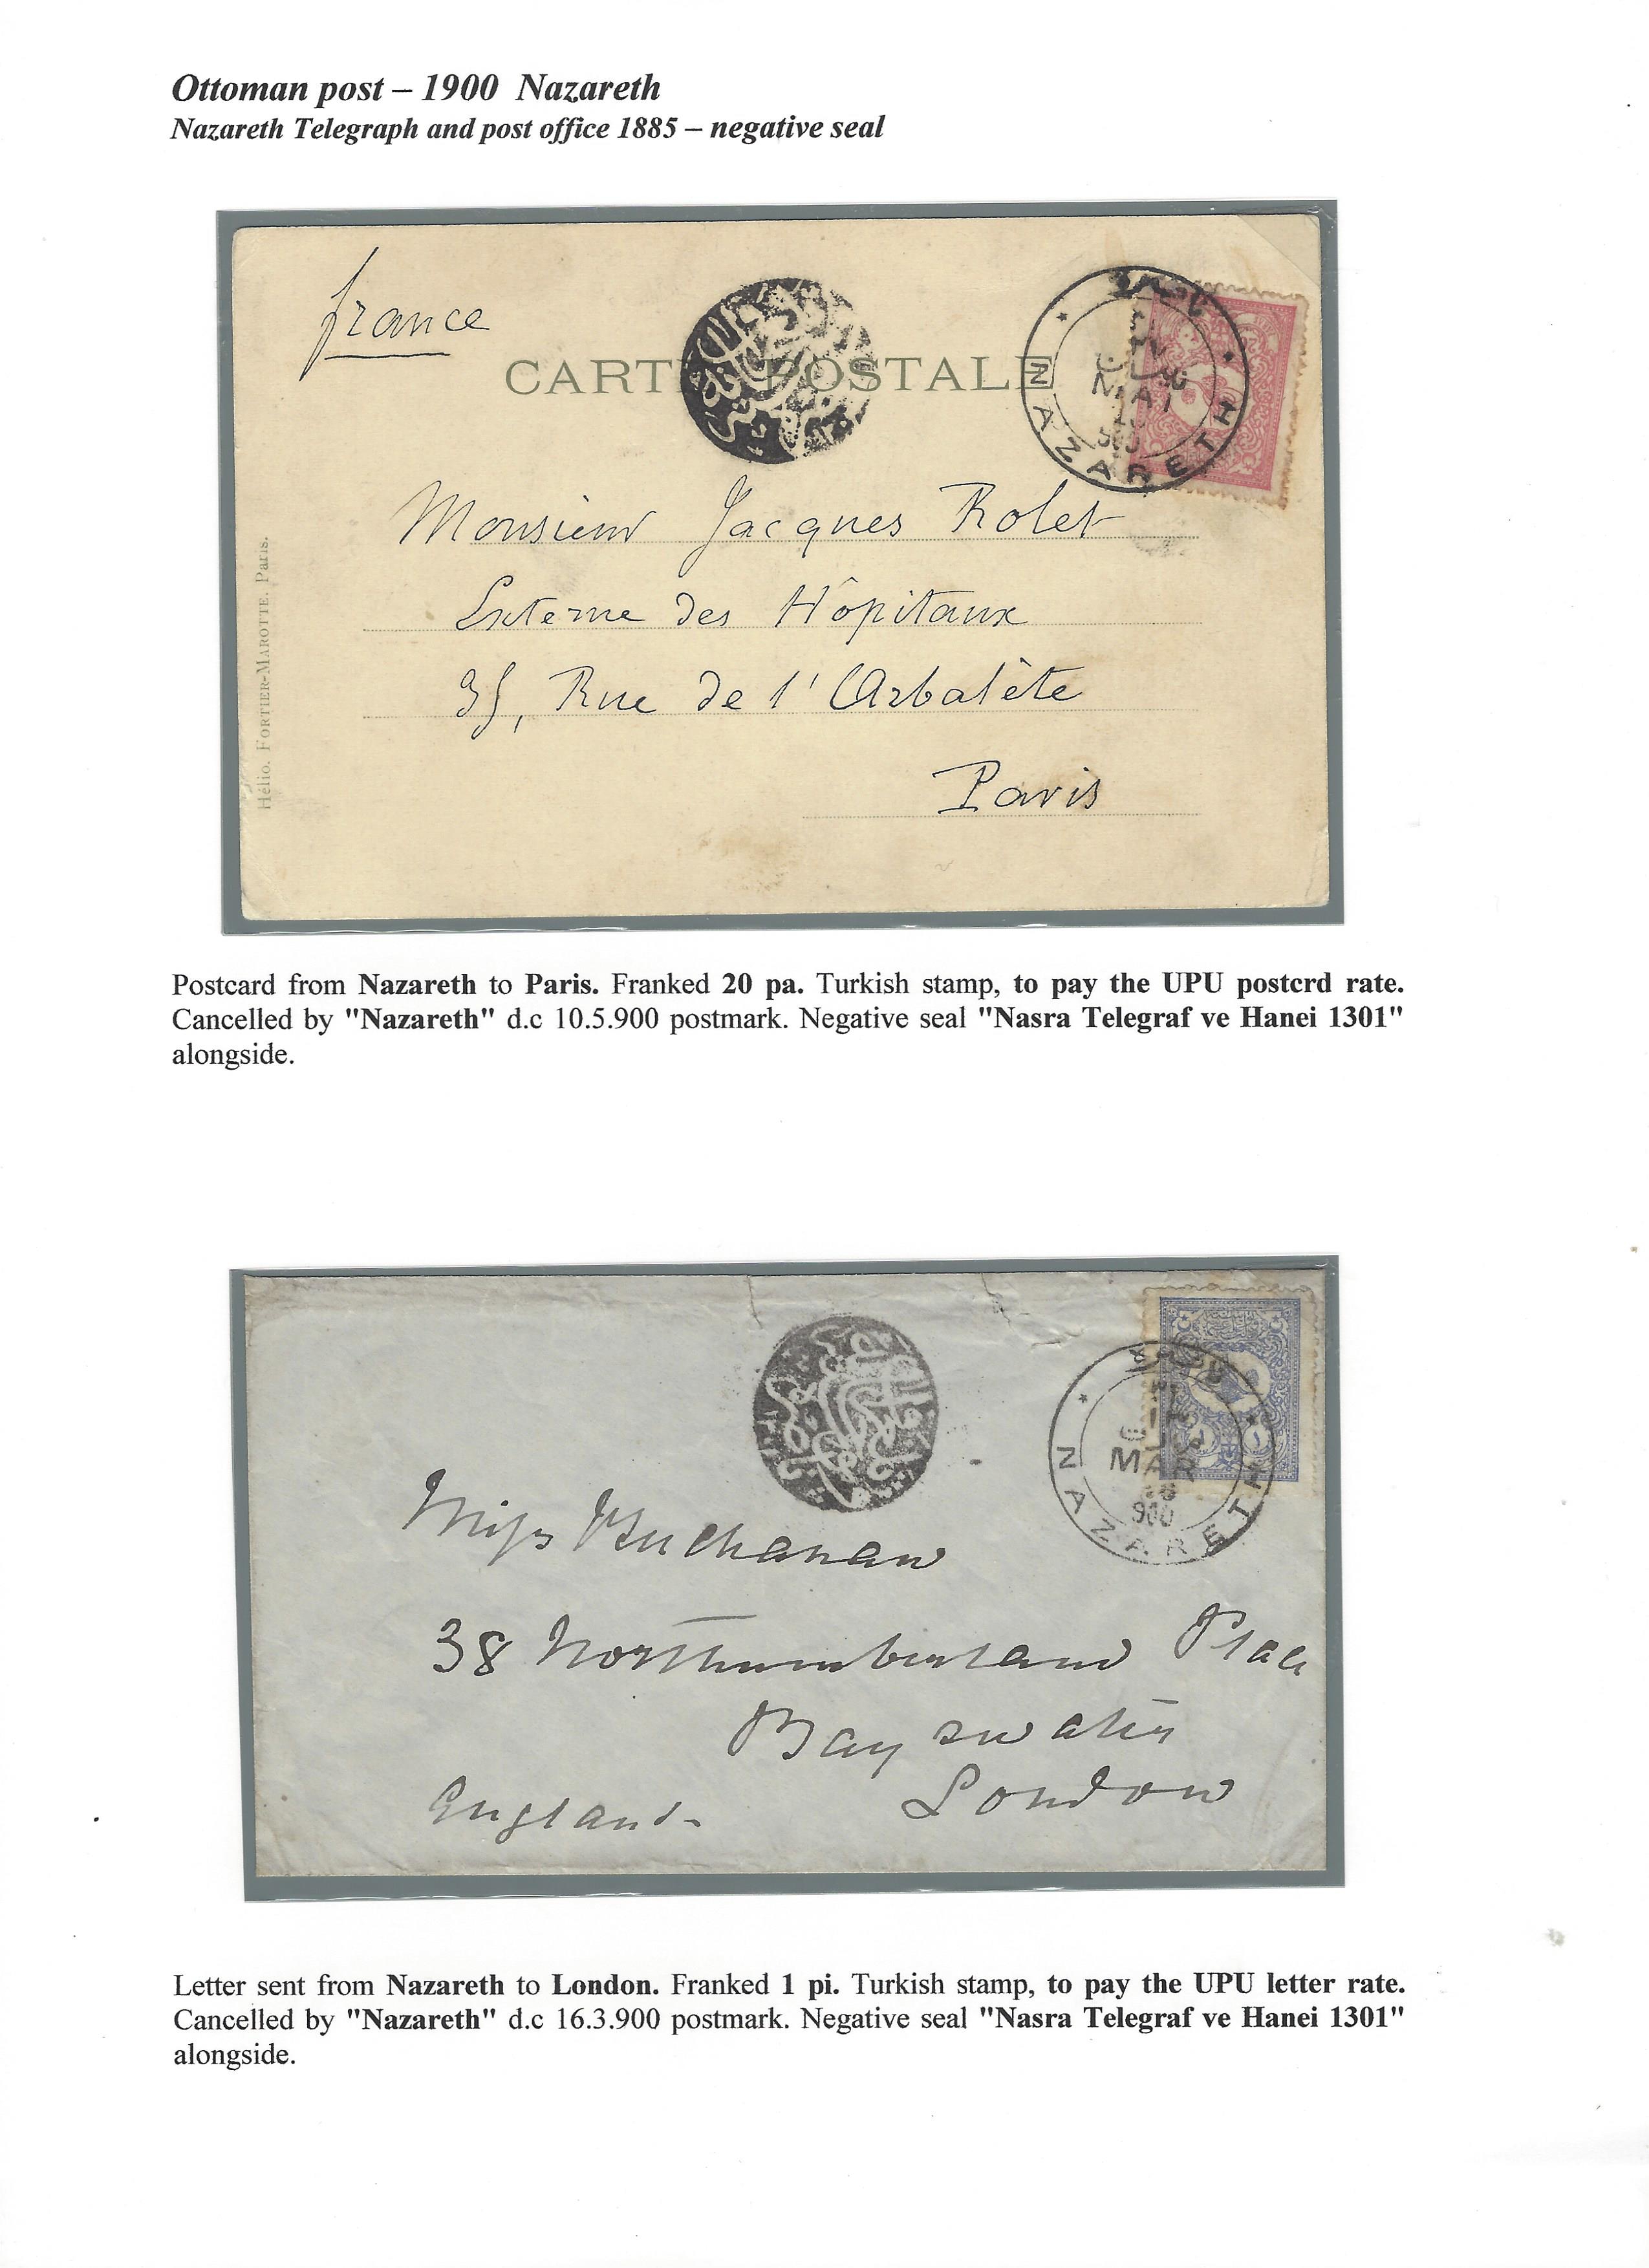 Ottoman post – 1900 Nazareth
Nazareth Telegraph and post office 1885 – negative seal
france
CARTE POSTALE
NAZARETH
MAI
10
900
Monsieur Jacques Rolet
Externe des Hôpitaux
35, Rue de l'Arbalète
Paris
Hélio. FORTIER-MAROTTE. Paris.
Postcard from Nazareth to Paris. Franked 20 pa. Turkish stamp, to pay the UPU postcrd rate.
Cancelled by "Nazareth" d.c 10.5.900 postmark. Negative seal "Nasra Telegraf ve Hanei 1301"
alongside.
MAR
900
NAZARETH
Miss Buchanan
38 Northumberland Place
Bayswater
London
England
Letter sent from Nazareth to London. Franked 1 pi. Turkish stamp, to pay the UPU letter rate.
Cancelled by "Nazareth" d.c 16.3.900 postmark. Negative seal "Nasra Telegraf ve Hanei 1301"
alongside.